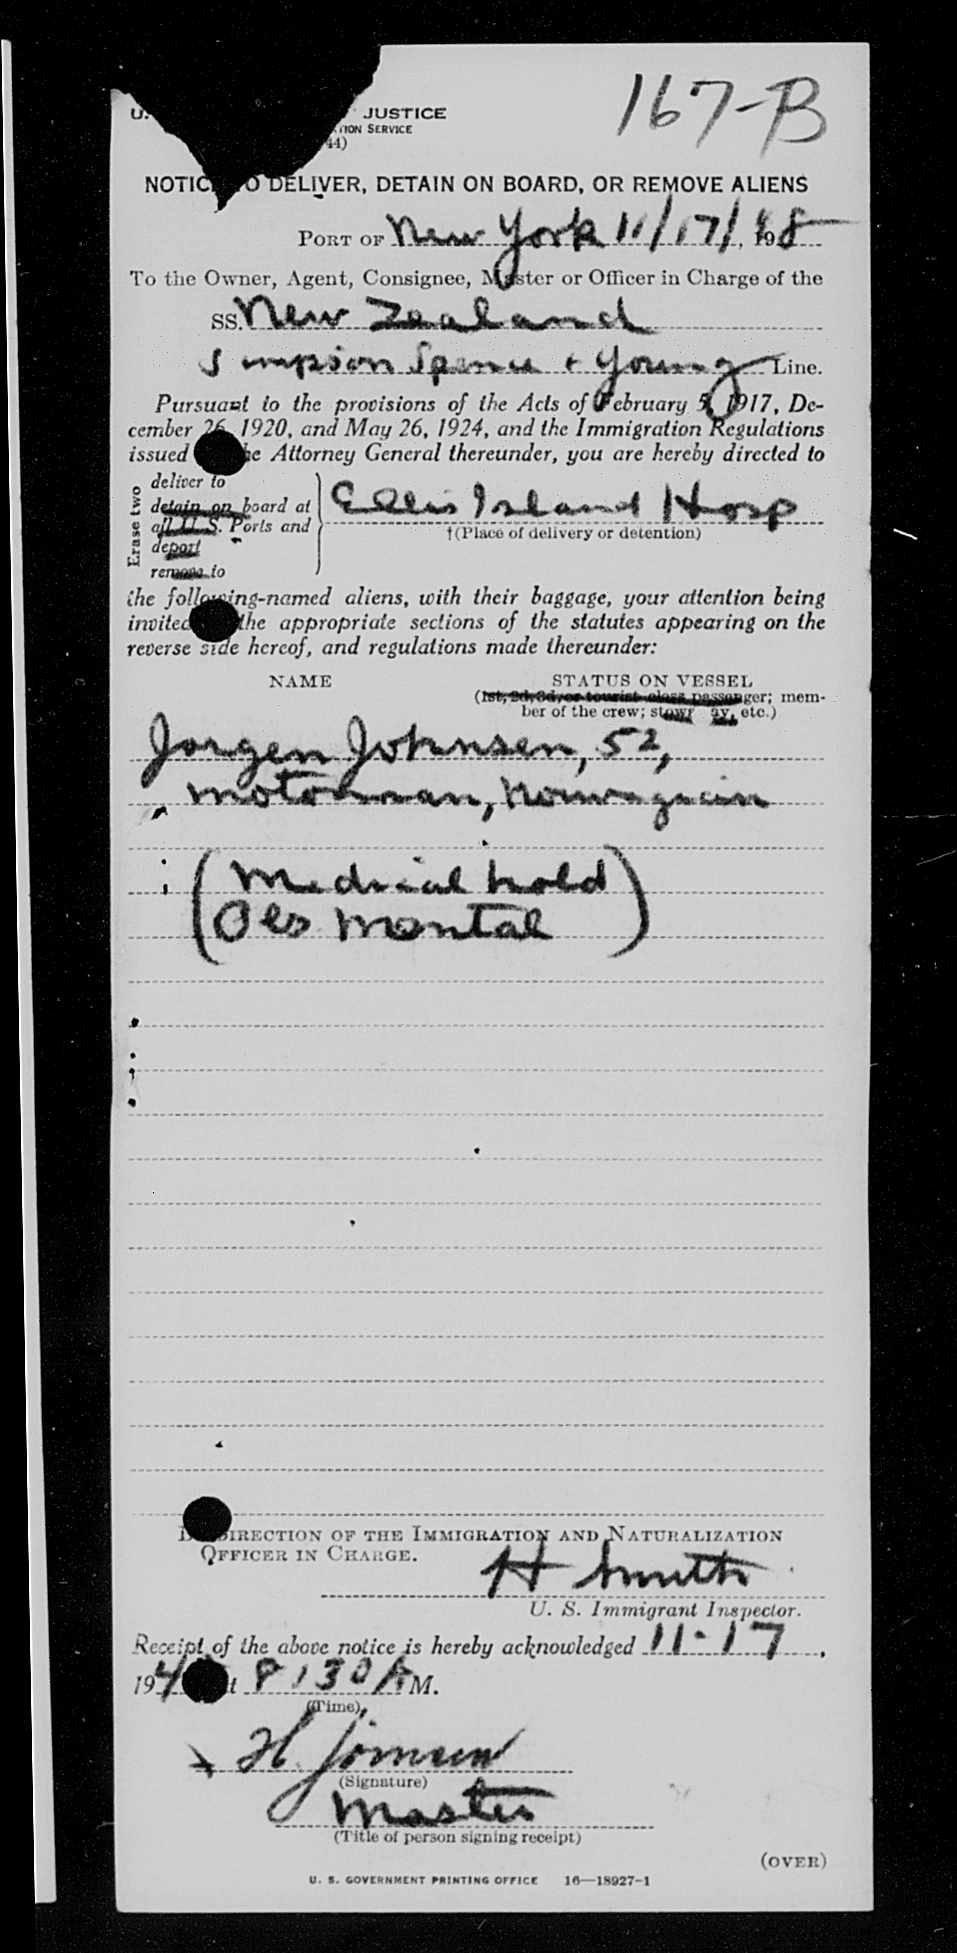 167-B
U. JUSTICE
SERVICE
44)
NOTICE TO DELIVER, DETAIN ON BOARD, OR REMOVE ALIENS
PORT OF New York 11/17/, 1948
To the Owner, Agent, Consignee, Master or Officer in Charge of the
SS. New Zealand
Simpson Spence + Young Line.
Pursuant to the provisions of the Acts of February 5, 1917, De-
cember 26, 1920, and May 26, 1924, and the Immigration Regulations
issued the Attorney General thereunder, you are hereby directed to
Erase two
deliver to
detain on board at
all U. S. Ports and
deport
remove to
Ellis Island Hosp
†(Place of delivery or detention)
the following-named aliens, with their baggage, your attention being
invited the appropriate sections of the statutes appearing on the
reverse side hereof, and regulations made thereunder:
NAME STATUS ON VESSEL
(1st, 2d, 3d, or tourist class passenger; mem-
ber of the crew; stowaway, etc.)
Jorgen Johnsen, 52,
Motorman, Norwegian
(Medical hold
Obs Mental)
DIRECTION OF THE IMMIGRATION AND NATURALIZATION
OFFICER IN CHARGE.
H Smith
U. S. Immigrant Inspector.
Receipt of the above notice is hereby acknowledged 11-17,
194 at 8:30 A M.
(Time)
x H.
(Signature)
Master
(Title of person signing receipt)
(OVER)
U. S. GOVERNMENT PRINTING OFFICE 16—18927-1